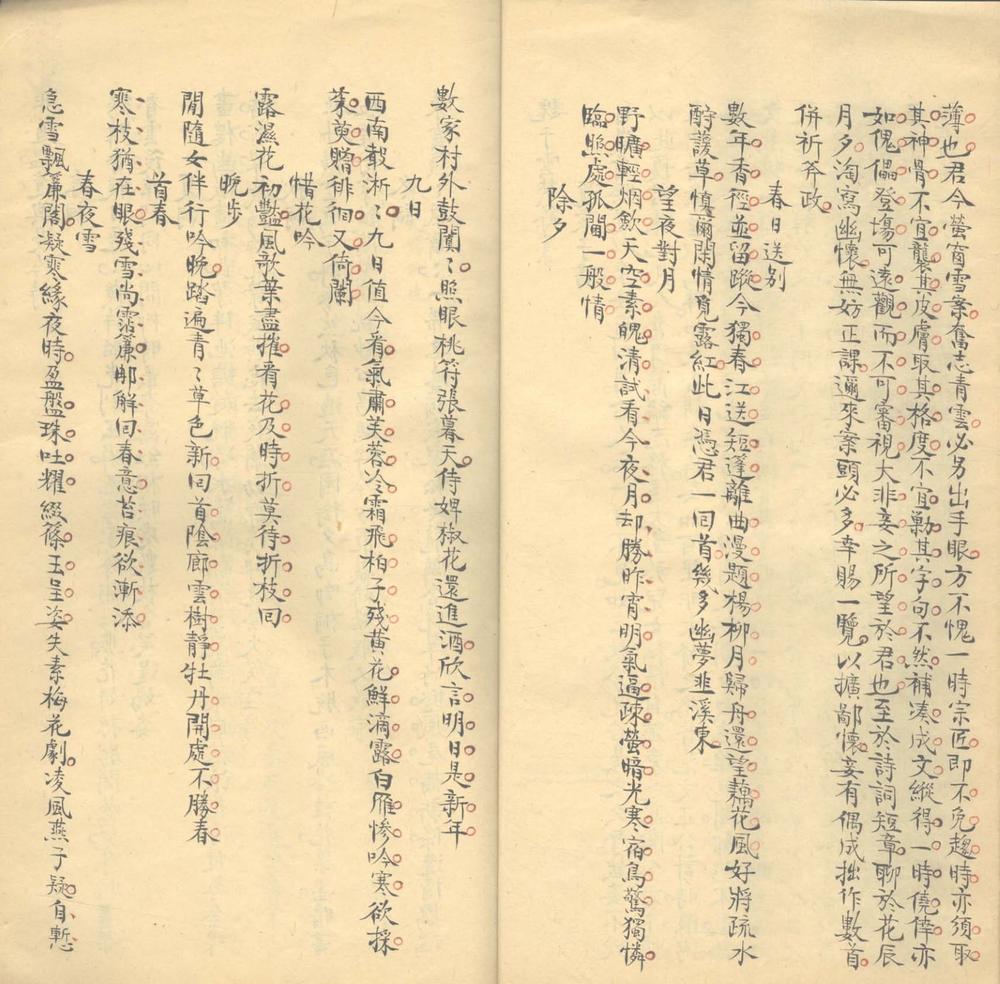 薄也君今螢窗雪案奮志青雲必另出手眼方不愧一時宗匠即不免趨時亦須取
其神骨不宜襲其皮膚取其格度不宜勦其字句不然補湊成文縱得一時僥倖亦
如傀儡登塲可遠觀而不可審視大非妾之所望於君也至於詩詞短章聊於花辰
月夕淘寫幽懷無妨正課邇來案頭必多幸賜一覽以擴鄙懷妾有偶成拙作數首
併祈斧政
春日送别
數年香徑並留蹤今獨春江送短篷離曲漫題楊柳月歸舟還望藕花風好將疏水
酧護草慎爾閑情覓露紅此日憑君一回首幾多幽夢韭溪東
望夜對月
野曠輕烟歛天空素魄清試看今夜月却勝昨宵明氣逼疎螢暗光寒宿鳥驚獨憐
臨照處孤閨一般情
除夕
數家村外鼓闐〻照眼桃符張暮天侍婢椒花還進酒欣言明日是新年
九日
西南敨淅〻九日值今肴氣肅芙蓉冷霜飛柏子殘黄花鮮滴露白雁慘吟寒欲採
茱萸贈徘徊又倚闌
惜花吟
露濕花初豔風歌葉盡摧看花及時折莫待折枝回
晚步
閒隨女伴行吟晚踏遍青〻草色新回首陰廊雲樹靜牡丹開處不勝春
首春
寒枝猶在眼殘雪尚霑簾郍解回春意苔痕欲漸添
春夜雪
急雪飄簾閣凝寒緣夜時盈盤珠吐耀綴篠玉呈姿失素梅花劇凌風燕子疑自慙